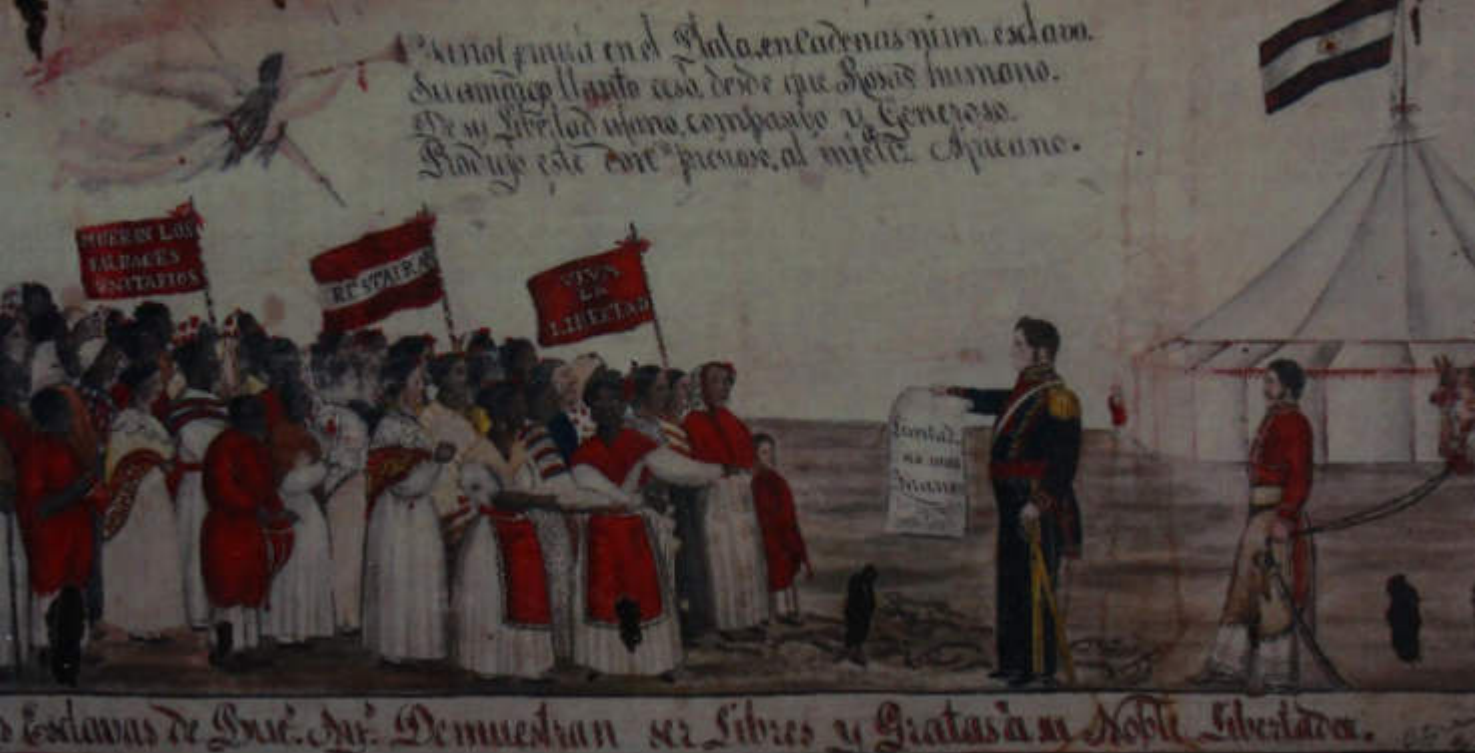 en el Plata, en Cadenas ni un esclavo.
Su amargo llanto desde que Rosas humano.
De su Libertad ufano, compasibo y Generoso.
Produjo este don precioso, al infeliz Africano.
MUERAN LOS
SALBAGES
UNITARIOS
RESTAURAD
VIVA
LA
LIBERTAD
Esclavas de Bue.ˢ Ay.ˢ Demuestran ser Libres y Gratas à su Noble Libertador.